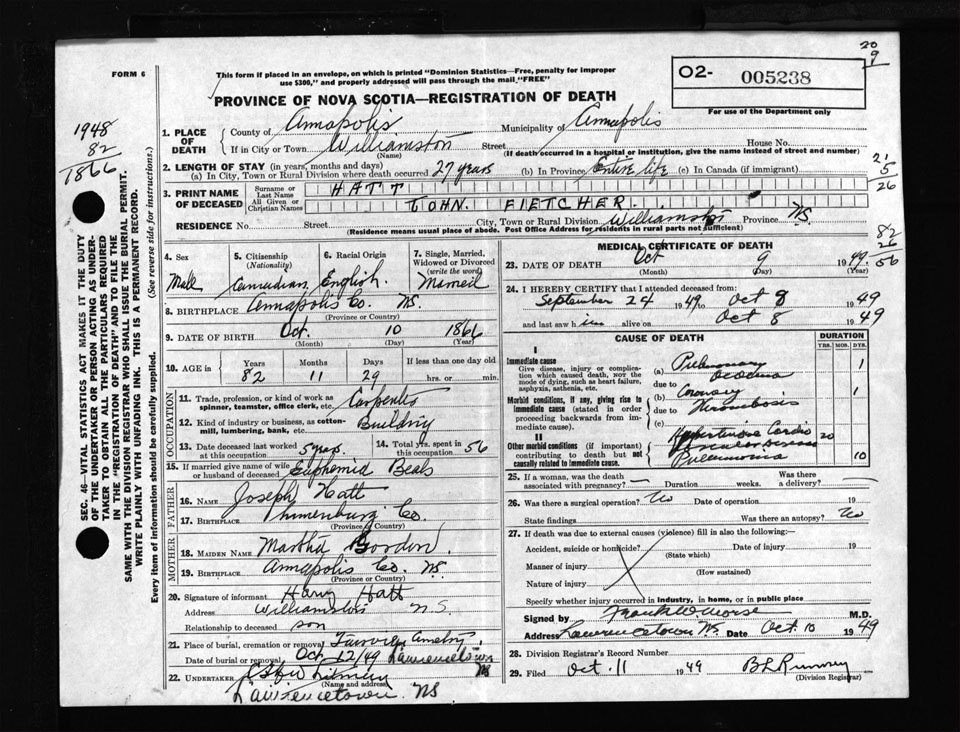 20
9
FORM 6
This form if placed in an envelope, on which is printed "Dominion Statistics—Free, penalty for improper
use $300," and properly addressed will pass through the mail "FREE"
O2- 005238
For use of the Department only
PROVINCE OF NOVA SCOTIA—REGISTRATION OF DEATH
1948
82
1866
1. PLACE OF DEATH
County of Annapolis Municipality of Annapolis
If in City or Town Williamston Street House No.
(Name) (If death occurred in a hospital or institution, give the name instead of street and number)
2. LENGTH OF STAY (in years, months and days)
(a) In City, Town or Rural Division where death occurred 27 years (b) In Province Entire life (c) In Canada (if immigrant)
21
5
26
3. PRINT NAME OF DECEASED
Surname or Last Name HATT
All Given or Christian Names JOHN. FLETCHER.
RESIDENCE No. Street City, Town or Rural Division Williamston Province N.S.
(Residence means usual place of abode. Post Office Address for residents in rural parts not sufficient)
82
26
56
SEC. 46—VITAL STATISTICS ACT MAKES IT THE DUTY
OF THE UNDERTAKER OR PERSON ACTING AS UNDER-
TAKER TO OBTAIN ALL THE PARTICULARS REQUIRED
IN THE "REGISTRATION OF DEATH" AND TO FILE THE
SAME WITH THE DIVISION REGISTRAR WHO SHALL ISSUE THE BURIAL PERMIT.
WRITE PLAINLY WITH UNFADING INK. THIS IS A PERMANENT RECORD.
Every item of information should be carefully supplied. (See reverse side for instructions.)
4. Sex
Male
5. Citizenship
(Nationality)
Canadian
6. Racial Origin
English
7. Single, Married,
Widowed or Divorced
(write the word)
Married
8. BIRTHPLACE Annapolis Co. NS.
(Province or Country)
9. DATE OF BIRTH Oct. 10 1866
(Month) (Day) (Year)
10. AGE in Years Months Days If less than one day old
82 11 29 hrs. or min.
OCCUPATION
11. Trade, profession, or kind of work as
spinner, teamster, office clerk, etc. Carpenter
12. Kind of industry or business, as cotton-
mill, lumbering, bank, etc. Building
13. Date deceased last worked
at this occupation 5 yrs. 14. Total yrs. spent in
this occupation 56
15. If married give name of wife
or husband of deceased Euphemia Beals
FATHER
16. NAME Joseph Hatt
17. BIRTHPLACE Lunenburg Co.
(Province or Country)
MOTHER
18. MAIDEN NAME Martha
19. BIRTHPLACE Annapolis Co. NS.
(Province or Country)
20. Signature of informant Harry Hatt
Address Williamston N.S.
Relationship to deceased son
21. Place of burial, cremation or removal Fairview
Date of burial or removal Oct 12/49 Lawrencetown NS
22. UNDERTAKER
(Name and address)
Lawrencetown. NS
MEDICAL CERTIFICATE OF DEATH
23. DATE OF DEATH Oct 9 1949.
(Month) (Day) (Year)
24. I HEREBY CERTIFY that I attended deceased from:
September 24 1949 to Oct 8 1949
and last saw him alive on Oct 8 1949
CAUSE OF DEATH
DURATION
YRS. MOS. DYS.
I
Immediate cause
Give disease, injury or complica-
tion which caused death, not the
mode of dying, such as heart failure,
asphyxia, asthenia, etc.
(a) Pulmonary Oedema 1
due to
Morbid conditions, if any, giving rise to
immediate cause (stated in order
proceeding backwards from im-
mediate cause).
(b) Coronary Thrombosis 1
due to
(c)
II
Other morbid conditions (if important)
contributing to death but not
causally related to immediate cause.
Hypertensive Cardio
Vascular Disease 20
Pneumonia 10
25. If a woman, was the death
associated with pregnancy? — Duration weeks. Was there
a delivery? —
26. Was there a surgical operation? No Date of operation 19
State findings Was there an autopsy? No
27. If death was due to external causes (violence) fill in also the following:—
Accident, suicide or homicide? Date of injury 19
(State which)
Manner of injury
(How sustained)
Nature of injury
Specify whether injury occurred in industry, in home, or in public place
Signed by Frank W Morse M.D.
Address Lawrencetown NS. Date Oct 10 1949
28. Division Registrar's Record Number
29. Filed Oct. 11 1949
(Division Registrar)